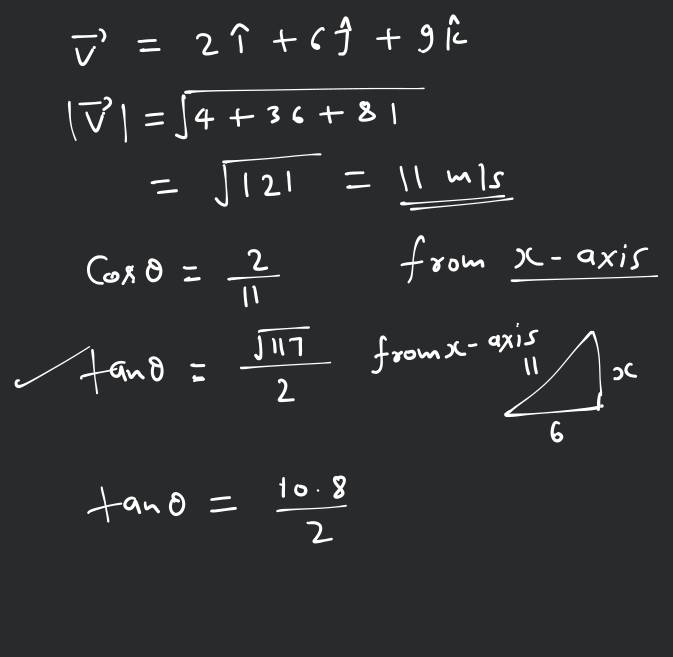 v⃗ = 2î + 6ĵ + 9k̂
|v⃗| = √4 + 36 + 81
= √121 = 11 m/s
Cos θ = 2/11 from x-axis
tanθ = √117/2 from x-axis
11 x
6
tanθ = 10.8/2